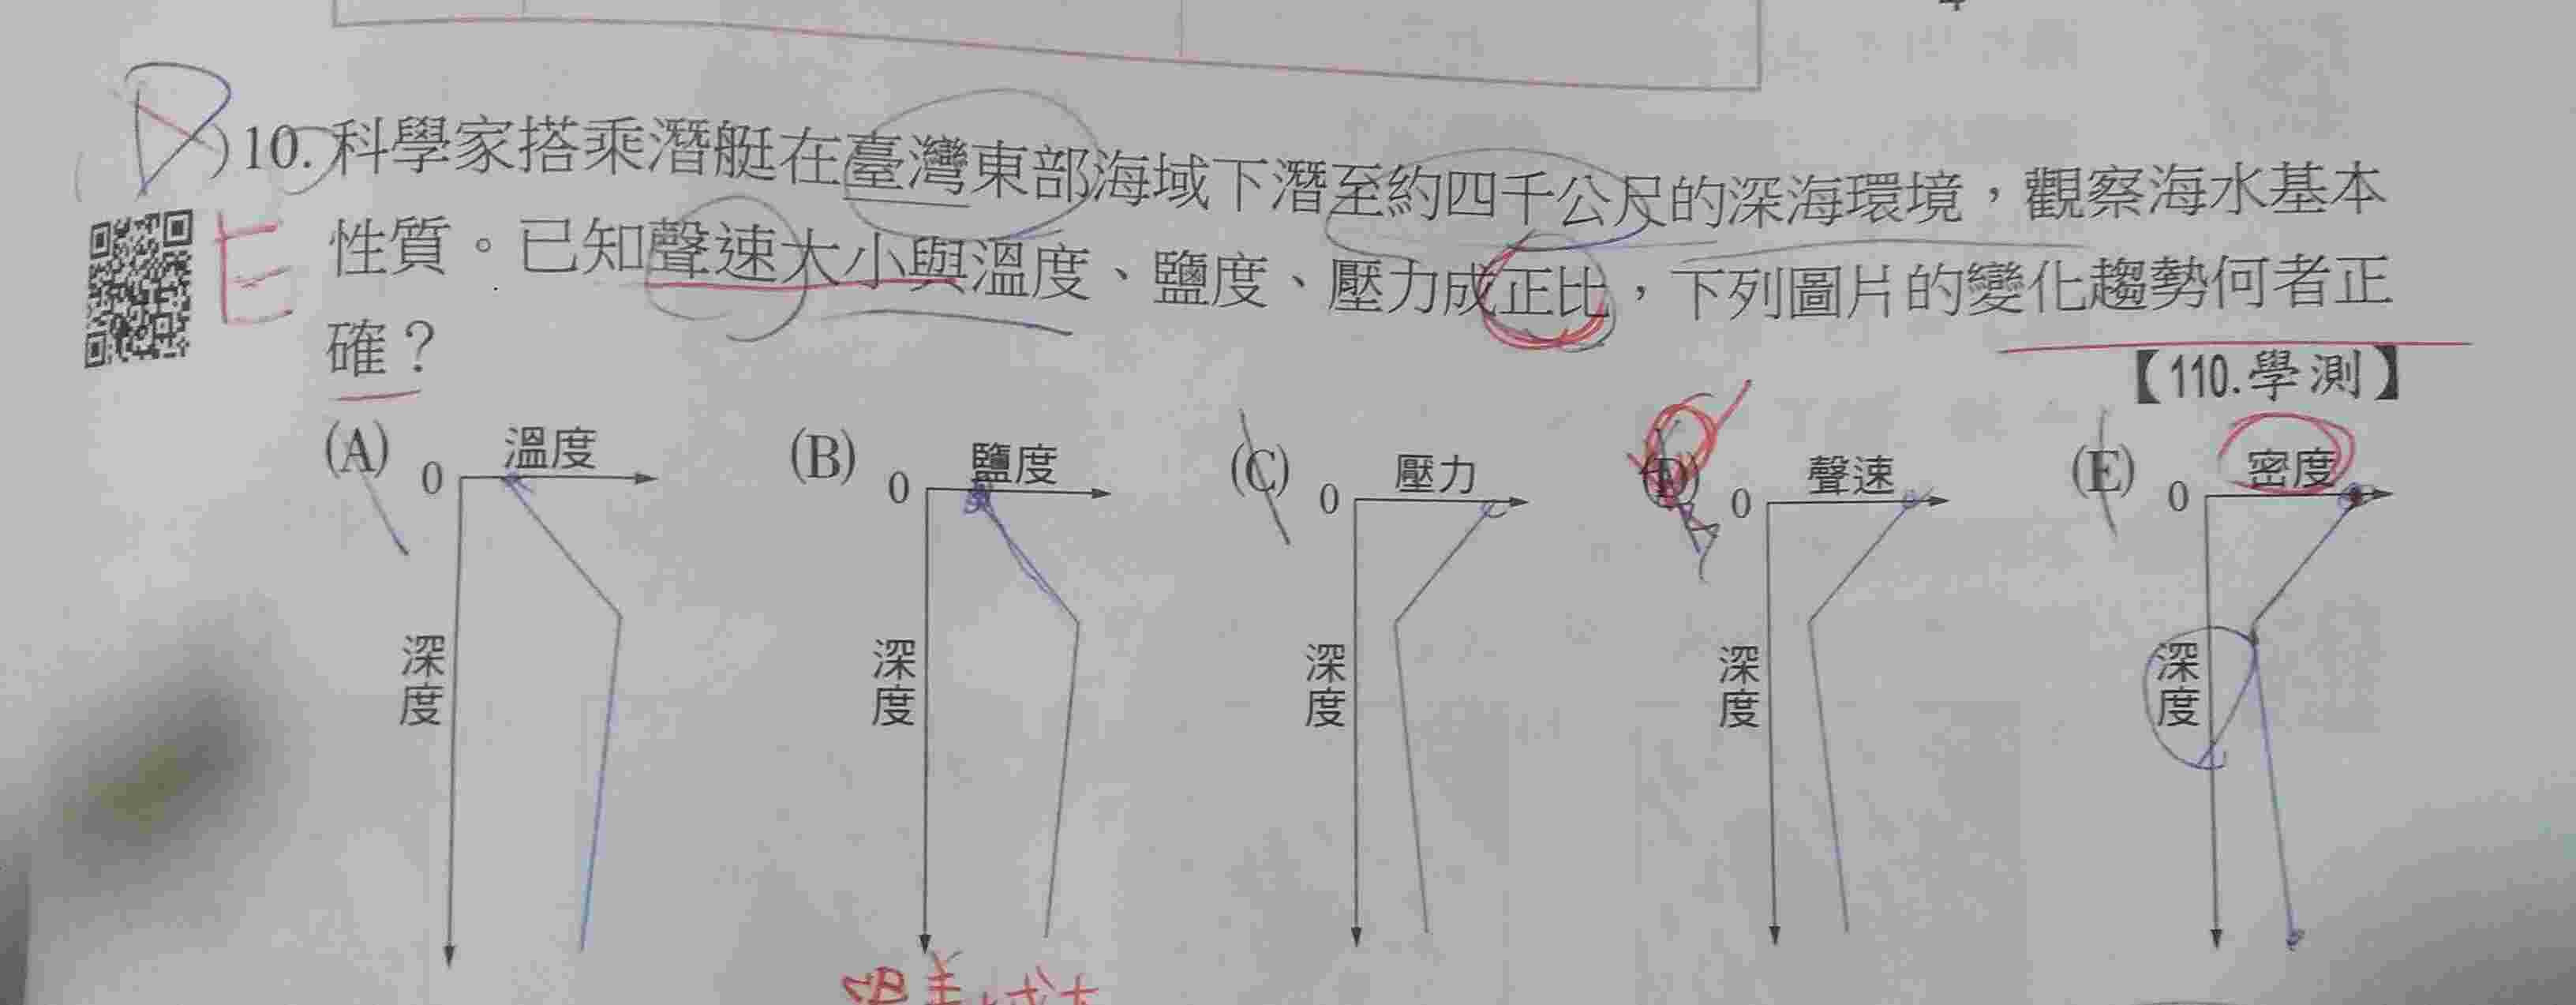 D)10.科學家搭乘潛艇在臺灣東部海域下潛至約四千公尺的深海環境，觀察海水基本
E 性質。已知聲速大小與溫度、鹽度、壓力成正比，下列圖片的變化趨勢何者正
確？
【110.學測】
(A) 0 溫度 深度
(B) 0 鹽度 深度
(C) 0 壓力 深度
(D) 0 聲速 深度
(E) 0 密度 深度